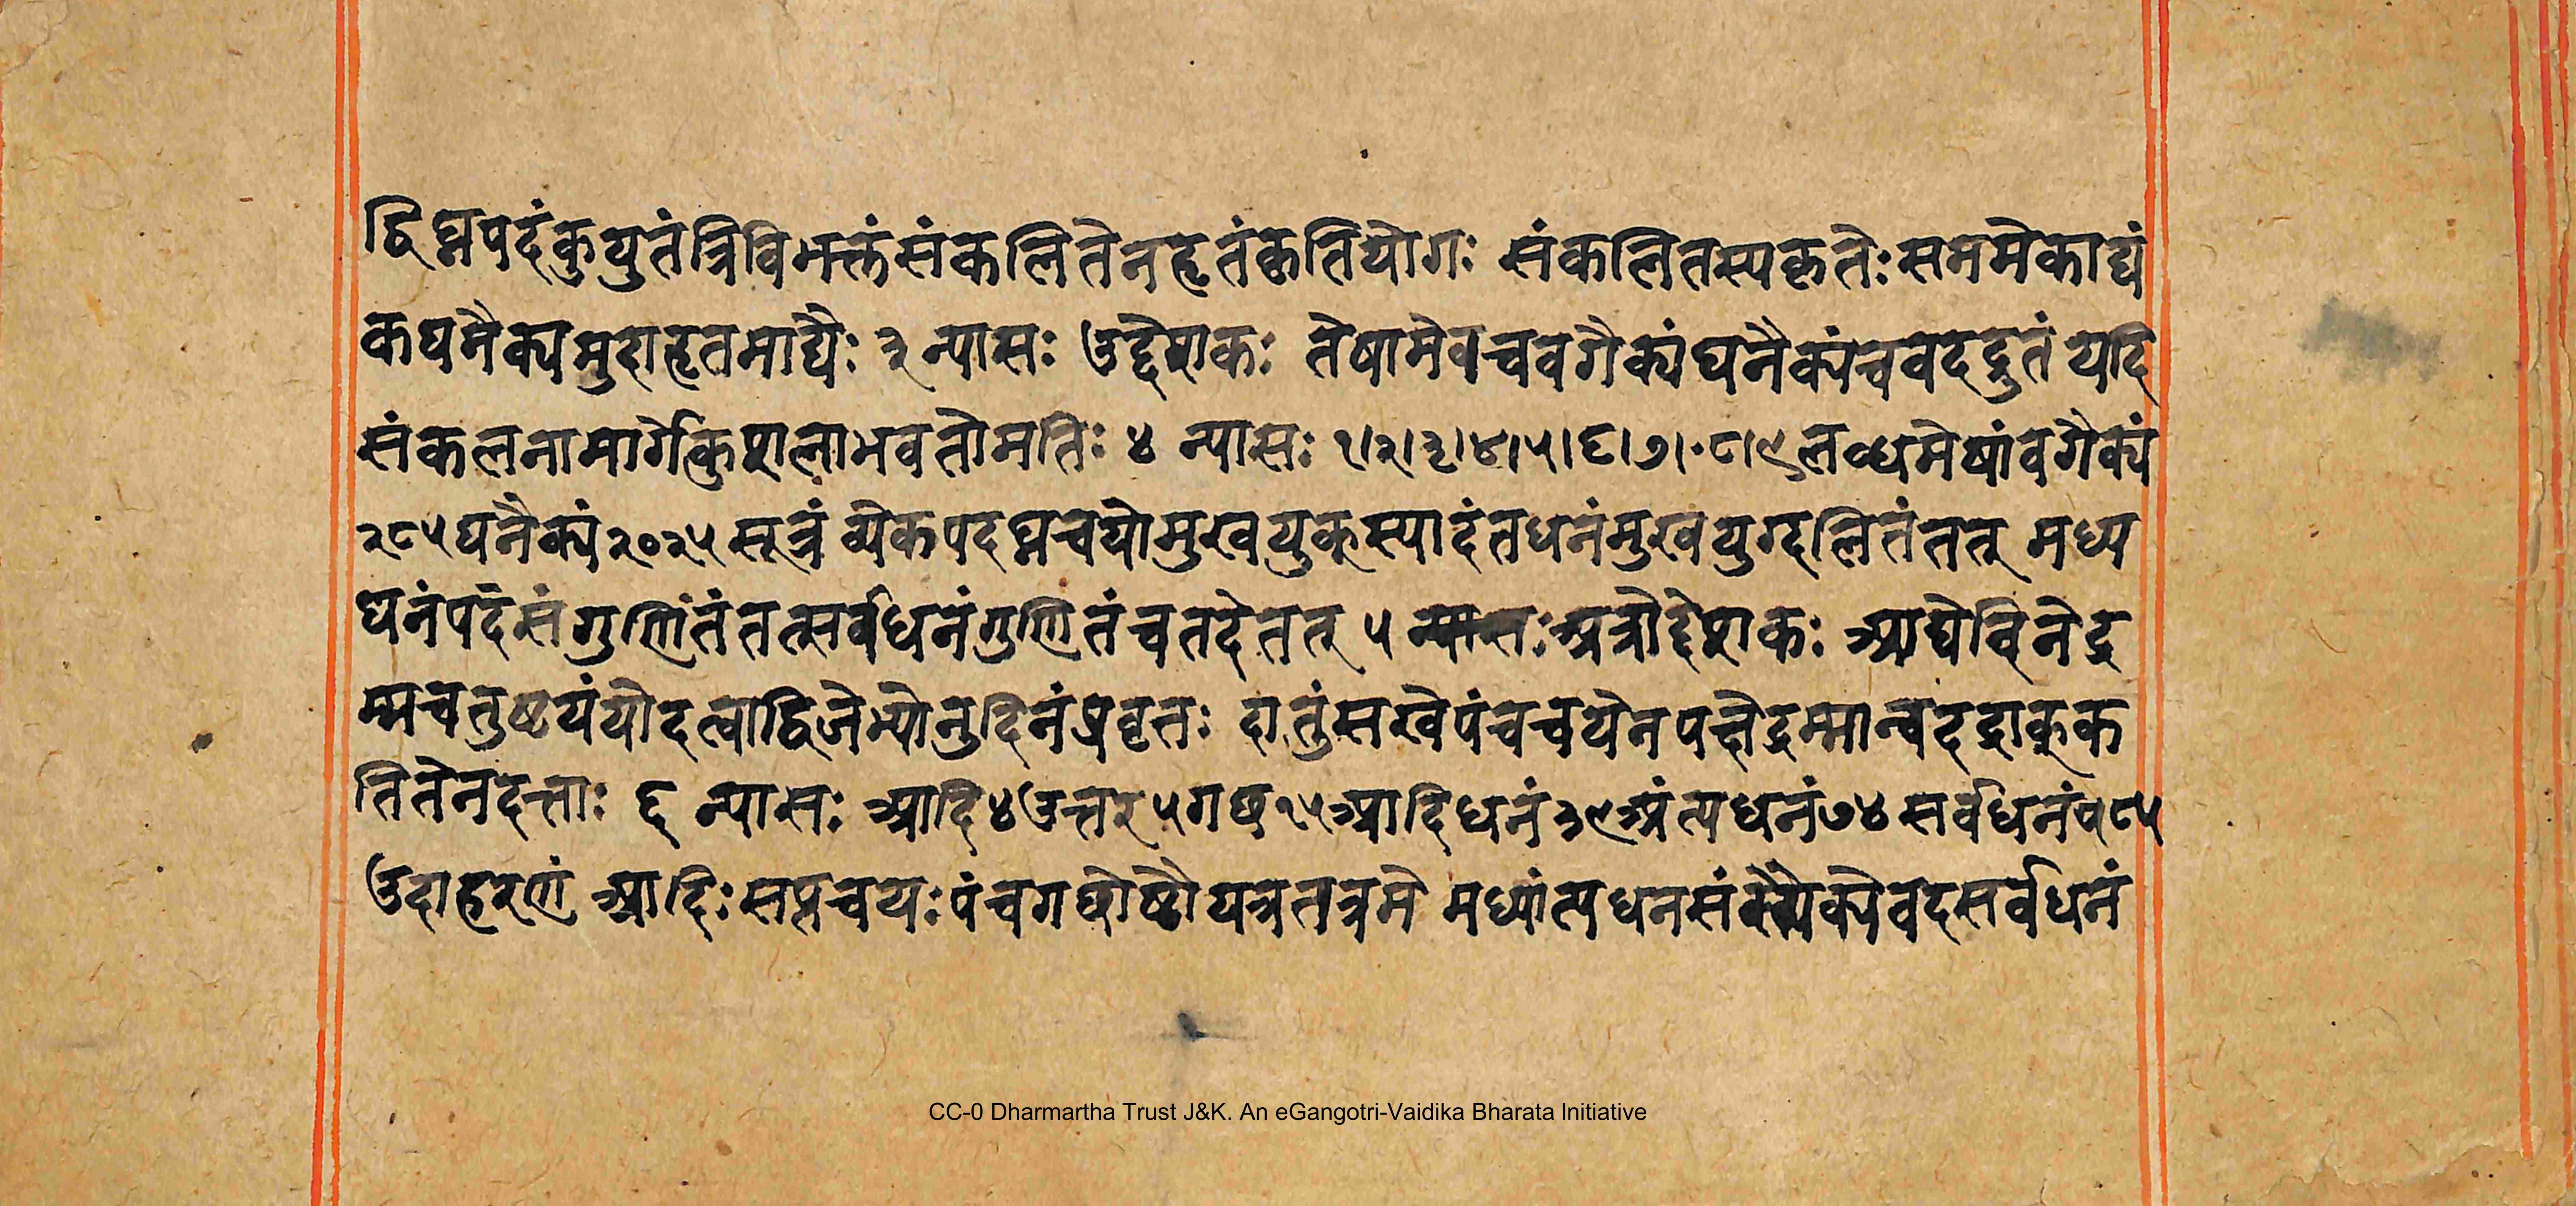 द्विघ्नपदंकुयुतंत्रिविभक्तंसंकलितेनहृतंकृतियोगः संकलितस्यकृतेःसममेकाद्यं
कघमैक्यमुदाहृतमाद्यैः ३ न्यासः उद्देशकः तेषामेवचवर्गैक्यंघनैक्यंचवदद्रुतं यदि
संकलनामार्गेकुशलाभवतोमतिः ४ न्यासः १।२।३।४।५।६।७।८।९लब्धमेषांवर्गैक्यं
२८५घनैक्यं२०२५सूत्रं व्येकपदघ्नचयोमुखयुक्स्यादंतधनंमुखयुग्दलितंतत् मध्य
धनंपदसंगुणितंतत्सर्वधनंगुणितंचतदेतत् ५ न्यासःअत्रोद्देशकः आद्येदिनेद्र
म्मचतुष्टयंयोदत्वाद्विजेभ्योनुदिनंप्रवृत्तः दातुंसखेपंचचयेनपक्षेद्रम्मान्वदद्राक्क
तितेनदत्ताः ६ न्यासः आदि४उत्तर५गछ१५आदिधनं३९अंत्यधनं७४सर्वधनं५८५
उदाहरणं आदिःसप्तचयःपंचगछोष्टौयत्रतत्रमे मध्यांत्यधनसंख्येकेवदसर्वधनं
CC-0 Dharmartha Trust J&K. An eGangotri-Vaidika Bharata Initiative